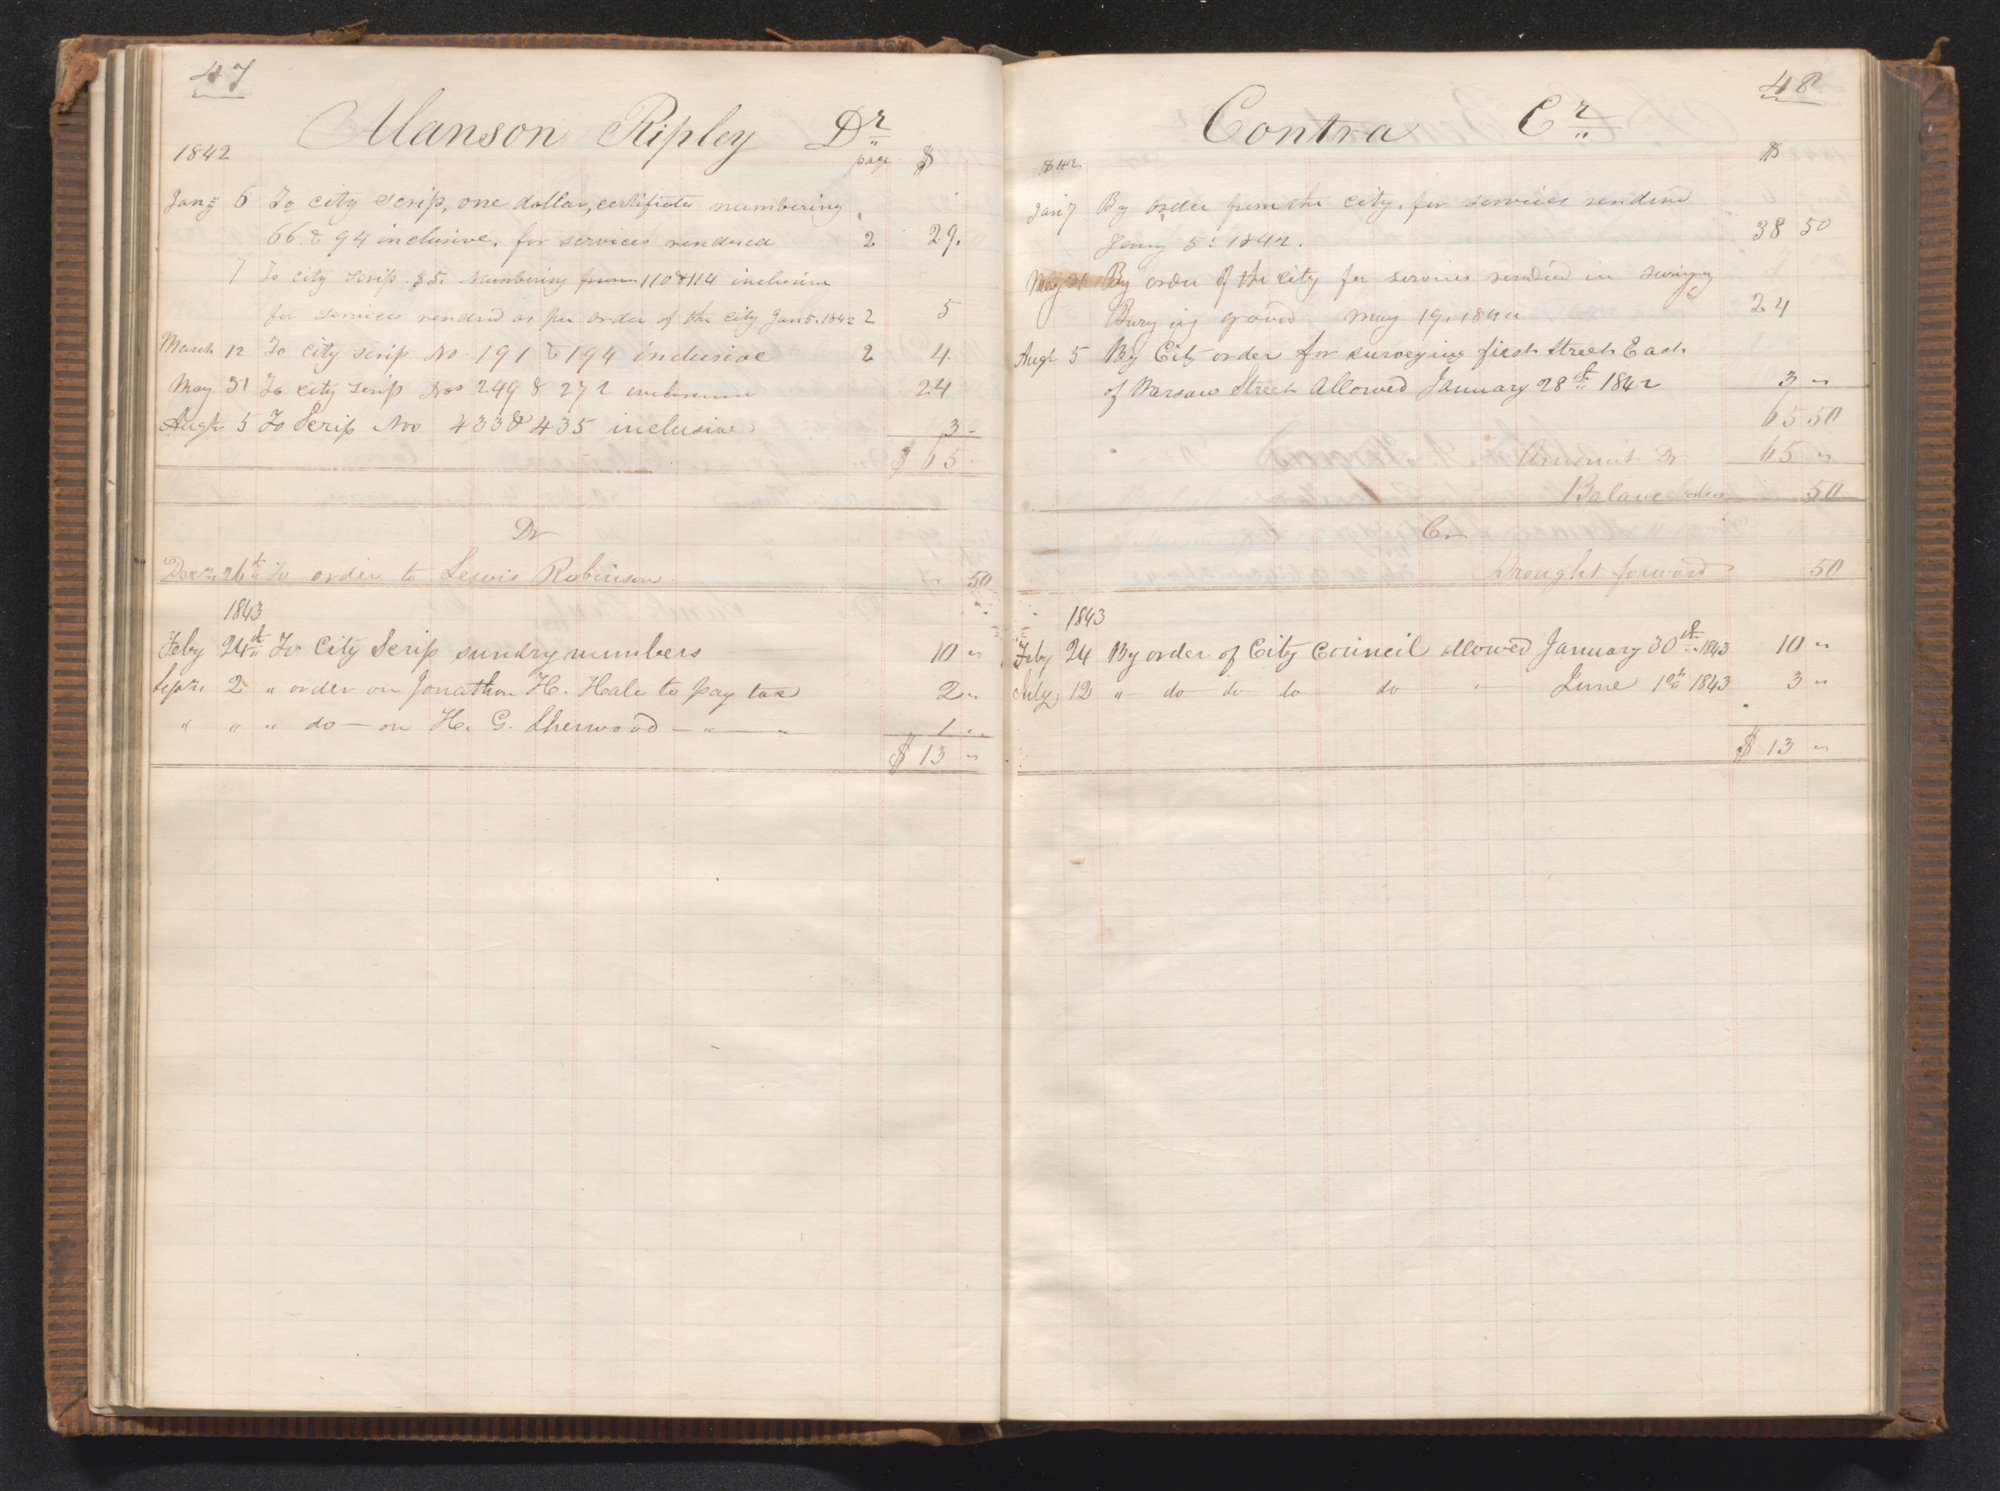 47
Alanson Ripley Dr
1842 page $
Jany 6 To city scrip, one dollar, certificates numbering
66 & 94 inclusive, for services rendered 2 29.
7 To city scrip $5. Numbering from 110 & 114 inclusive
for services rendrd as per order of the city Jan 5. 1842 2 5
March 12 To city scrip No 191 & 194 inclusive 2 4
May 31 To city scrip Nos 249 & 272 inclusive 24
Augt 5 To Scrip Nos 433 & 435 inclusive 3 -
$ 65 -
Dr
Decm 26th To order to Lewis Robinson " 50
1843
Feby 24th To City Scrip sundry numbers 10 "
Septr 2 " order on Jonathan H. Hale to pay tax 2 "
" " " do — on H. G. Sherwood — " — " 1 "
$ 13 "
48
Contra Cr
1842 $
Jan 7 By order from the city, for services rendrd
Jany 5: 1842. 38 50
May 31 By order of the city for services rendrd in
Burying ground May 19, 1842 24
Augt 5 By City order for surveying first Street East
of Warsaw Street allowed January 28th 1842 3 "
65 50
Amount Dr 65 "
Balance due 50
Cr
Brought forward 50
1843
Feby 24 By order of City Council allowed January 30th 1843 10 "
July 12 " do do do do " June 10th 1843 3 "
$ 13 "